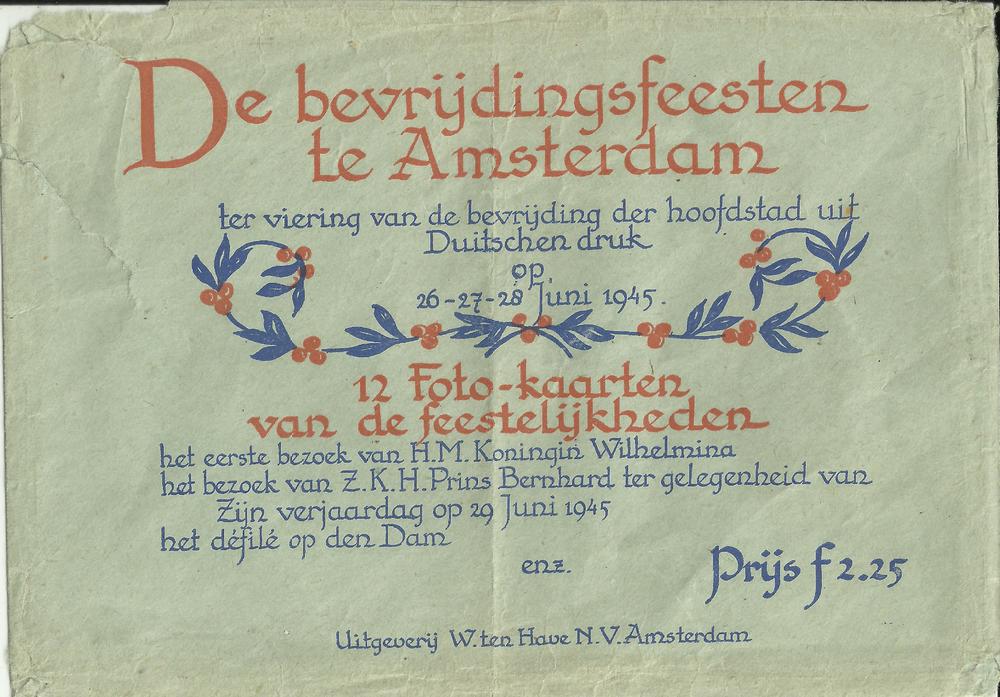 De bevrijdingsfeesten
te Amsterdam
ter viering van de bevrijding der hoofdstad uit
Duitschen druk
op.
26-27-28 Juni 1945.
12 Foto-kaarten
van de feestelijkheden
het eerste bezoek van H.M. Koningin Wilhelmina
het bezoek van Z.K.H. Prins Bernhard ter gelegenheid van
Zijn verjaardag op 29 Juni 1945
het défilé op den Dam
enz.
Prijs f 2.25
Uitgeverij W. ten Have N.V. Amsterdam